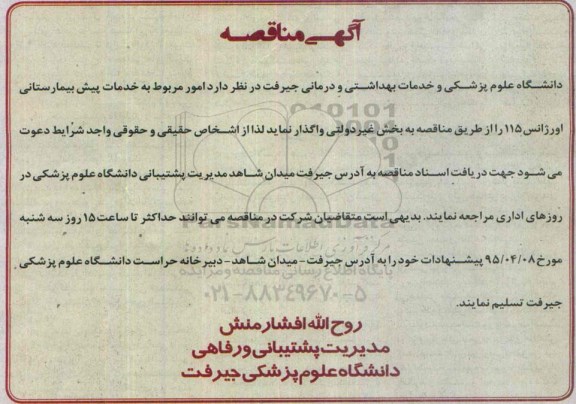 آگهی مناقصه
دانشگاه علوم پزشکی و خدمات بهداشتی و درمانی جیرفت در نظر دارد امور مربوط به خدمات پیش بیمارستانی
اورژانس ۱۱۵ را از طریق مناقصه به بخش غیر دولتی واگذار نماید لذا از اشخاص حقیقی و حقوقی واجد شرایط دعوت
می شود جهت دریافت اسناد مناقصه به آدرس جیرفت میدان شاهد مدیریت پشتیبانی دانشگاه علوم پزشکی در
روزهای اداری مراجعه نمایند. بدیهی است متقاضیان شرکت در مناقصه می توانند حداکثر تا ساعت ۱۵ روز سه شنبه
ParsNamadData
مرکز فرآوری اطلاعات پارس نماد داده ها
مورخ ۹۵/۰۴/۰۸ پیشنهادات خود را به آدرس جیرفت - میدان شاهد - دبیرخانه حراست دانشگاه علوم پزشکی
پایگاه اطلاع رسانی مناقصه و مزایده
جیرفت تسلیم نمایند.
۰۲۱-۸۸۳۴۹۶۷۰-۵
روح الله افشارمنش
مدیریت پشتیبانی ورفاهی
دانشگاه علوم پزشکی جیرفت